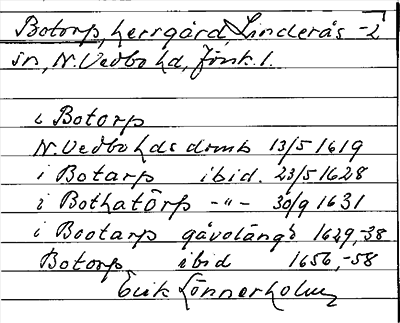 Botorp, herrgård, Linderås -2
sn, N. Vedbo hd, Jönk. l.
i Botorp
N. Vedbo hds domb 13/5 1619
i Botarp ibid. 23/5 1628
i Bothatörp -"- 30/9 1631
i Bootarp gåvolängd 1629,-38
Botorp ibid 1656,-58
Erik Lönnerholm